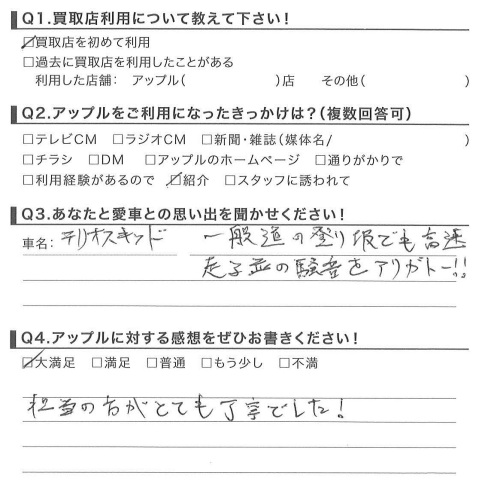 Q1.買取店利用について教えて下さい!
☑買取店を初めて利用
□過去に買取店を利用したことがある
利用した店舗: アップル( )店 その他( )
Q2.アップルをご利用になったきっかけは?(複数回答可)
□テレビCM □ラジオCM □新聞・雑誌(媒体名/ )
□チラシ □DM □アップルのホームページ □通りがかりで
□利用経験があるので ☑紹介 □スタッフに誘われて
Q3.あなたと愛車との思い出を聞かせてください!
車名: テリオスキッド 一般道の登り坂でも高速
走行並の騒音をアリガトー!!
Q4.アップルに対する感想をぜひお書きください!
☑大満足 □満足 □普通 □もう少し □不満
担当の方がとても丁寧でした!